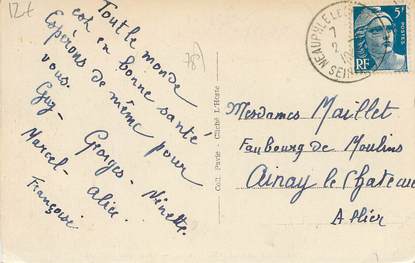 12+
Tout le monde
est en bonne santé
Espérons de même pour
vous.
Guy - Georges - Ninette.
Marcel - alice.
Françoise
78)
Coll. Pavie - Cliché L'Hoste
NEAUPHLE LE
7
2
SEINE
5F
POSTES
RF
Mesdames Maillet
Faubourg de Moulins
Ainay le Chateau
Allier